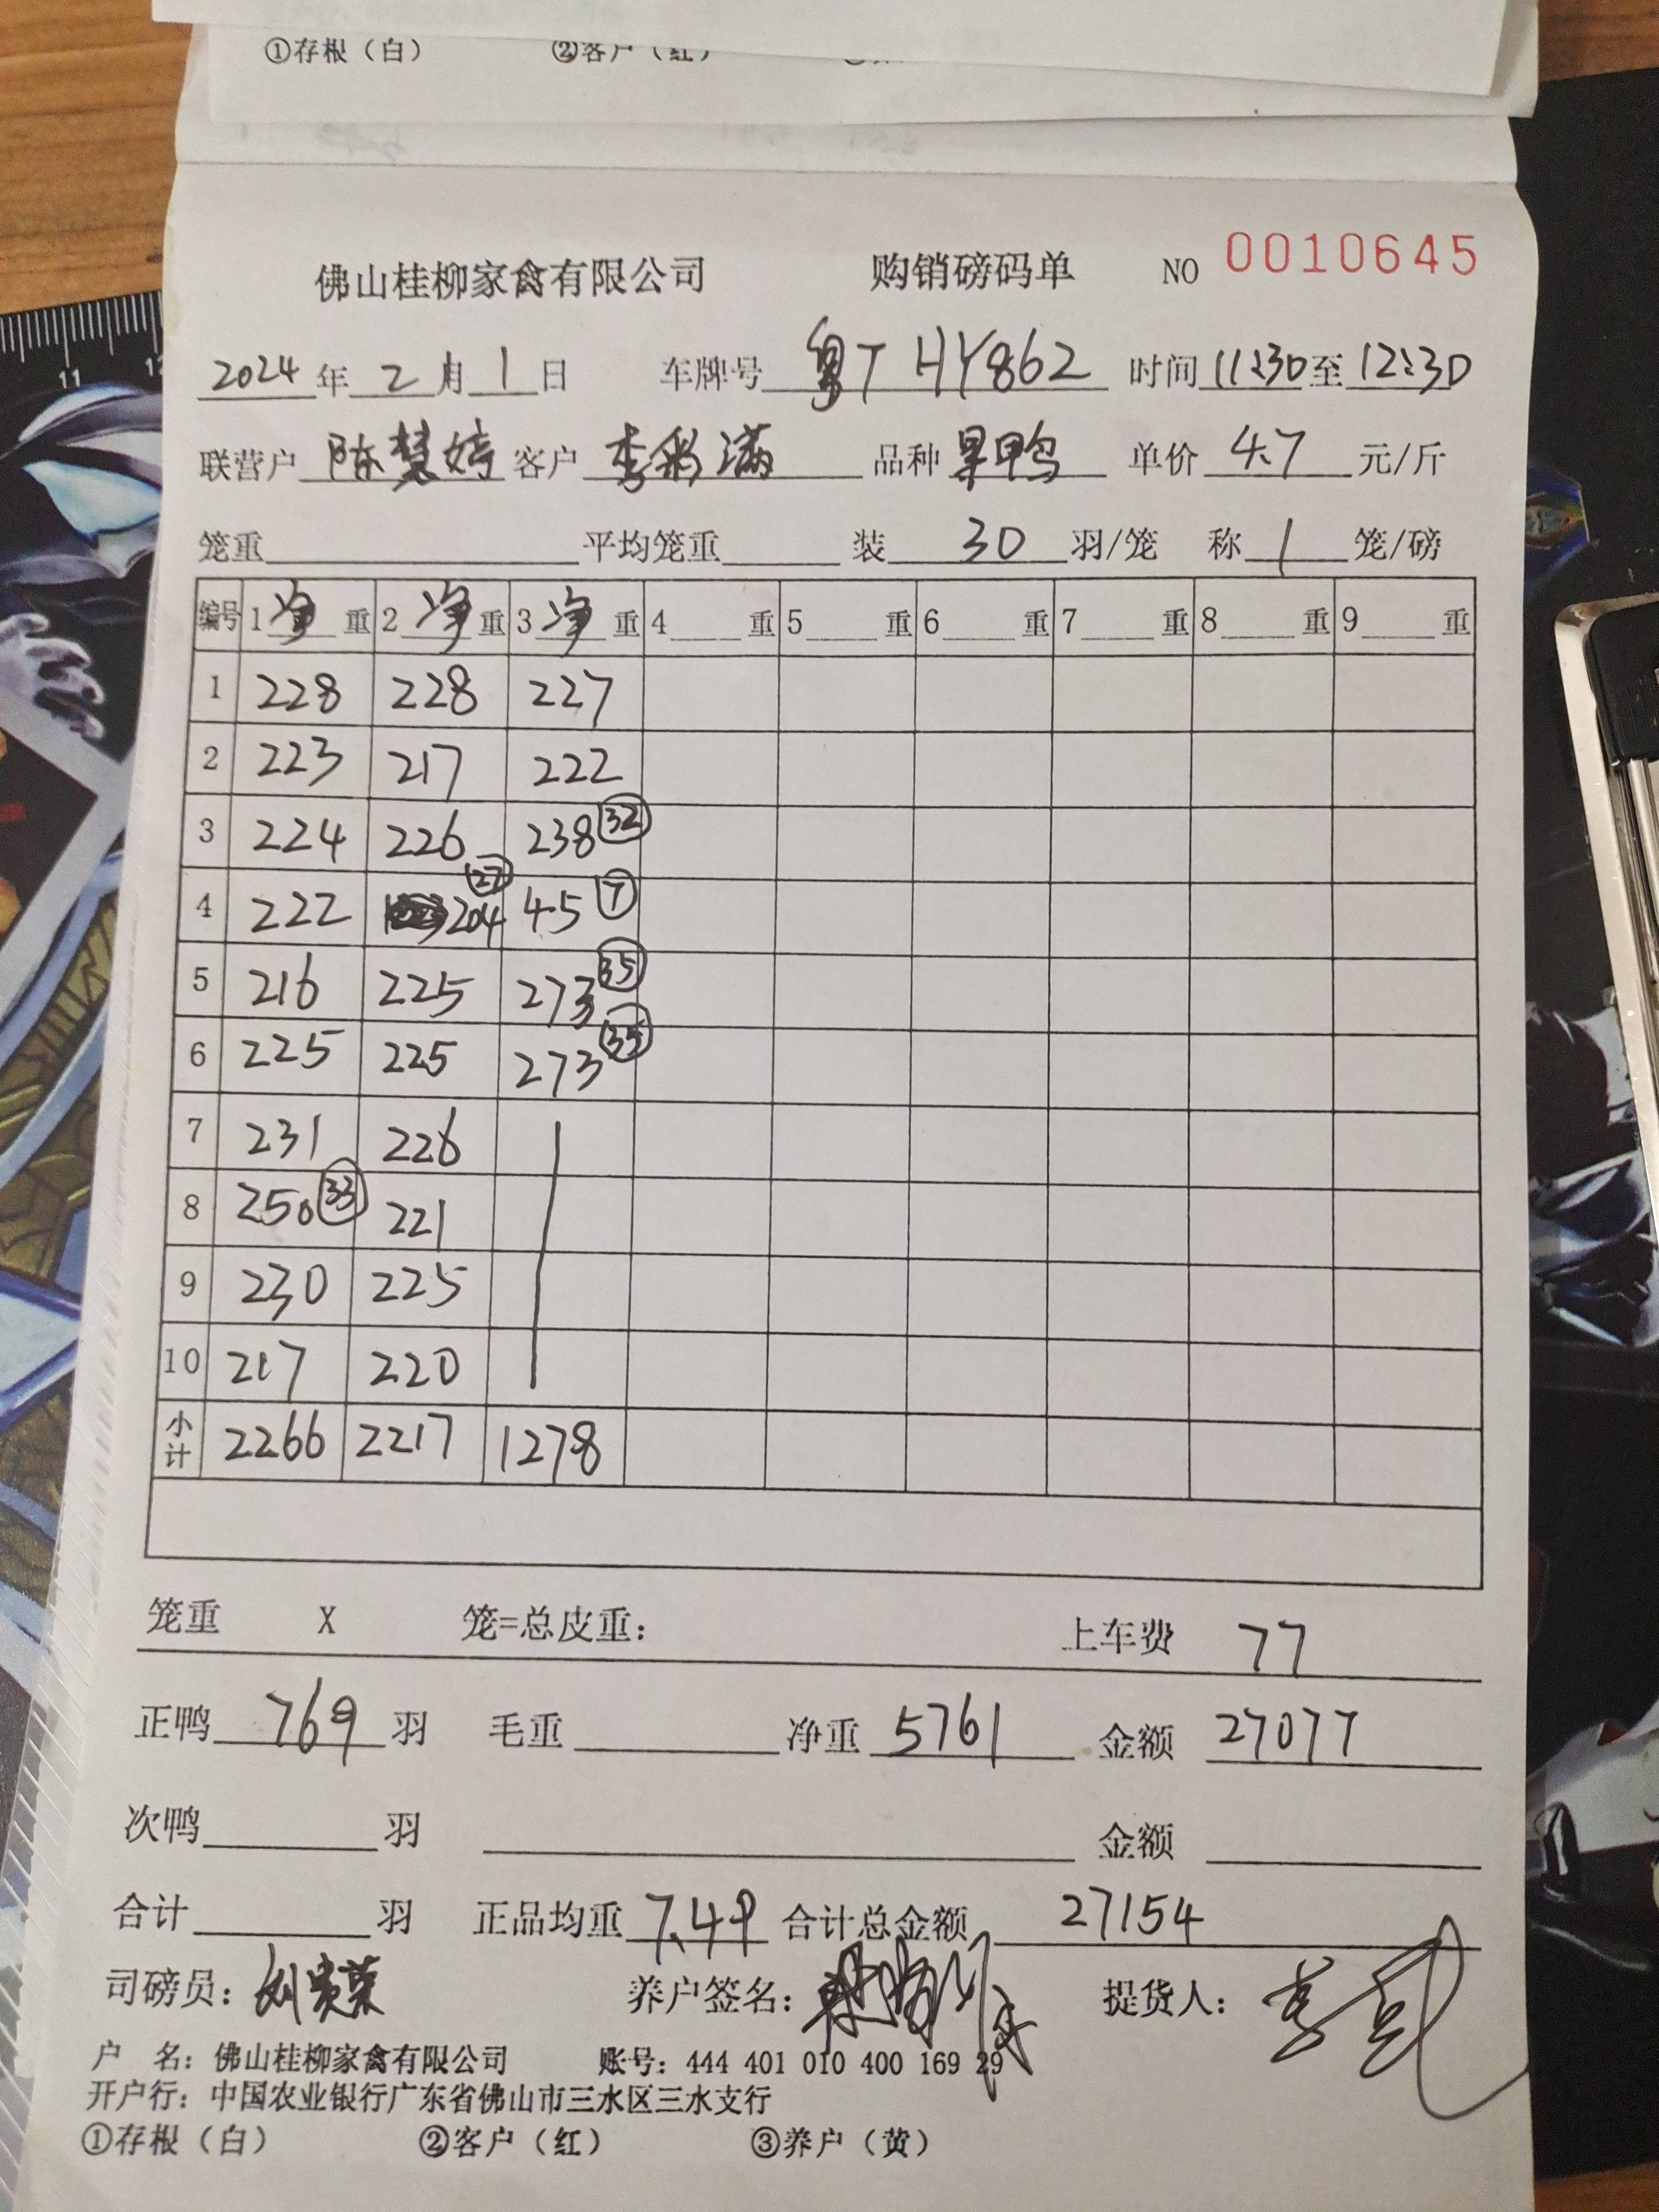 ①存根（白） ②客户（红）
佛山桂柳家禽有限公司 购销磅码单 NO 0010645
2024年2月1日 车牌号 粤T HY862 时间 11:30至12:30
联营户 陈慧婷 客户 李彩满 品种 果鸭 单价 4.7 元/斤
笼重 平均笼重 装 30 羽/笼 称 1 笼/磅
编号 1 净 重 2 净 重 3 净 重 4 重 5 重 6 重 7 重 8 重 9 重
1 228 228 227
2 223 217 222
3 224 226 238 32
4 222 204 27 45 7
5 216 225 273 35
6 225 225 273 35
7 231 226
8 250 33 221
9 230 225
10 217 220
小计 2266 2217 1278
笼重 X 笼=总皮重： 上车费 77
正鸭 769 羽 毛重 净重 5761 金额 27077
次鸭 羽 金额
合计 羽 正品均重 7.49 合计总金额 27154
司磅员：刘贵荣 养户签名： 提货人：
户 名：佛山桂柳家禽有限公司 账号：444 401 010 400 169 29
开户行：中国农业银行广东省佛山市三水区三水支行
①存根（白） ②客户（红） ③养户（黄）